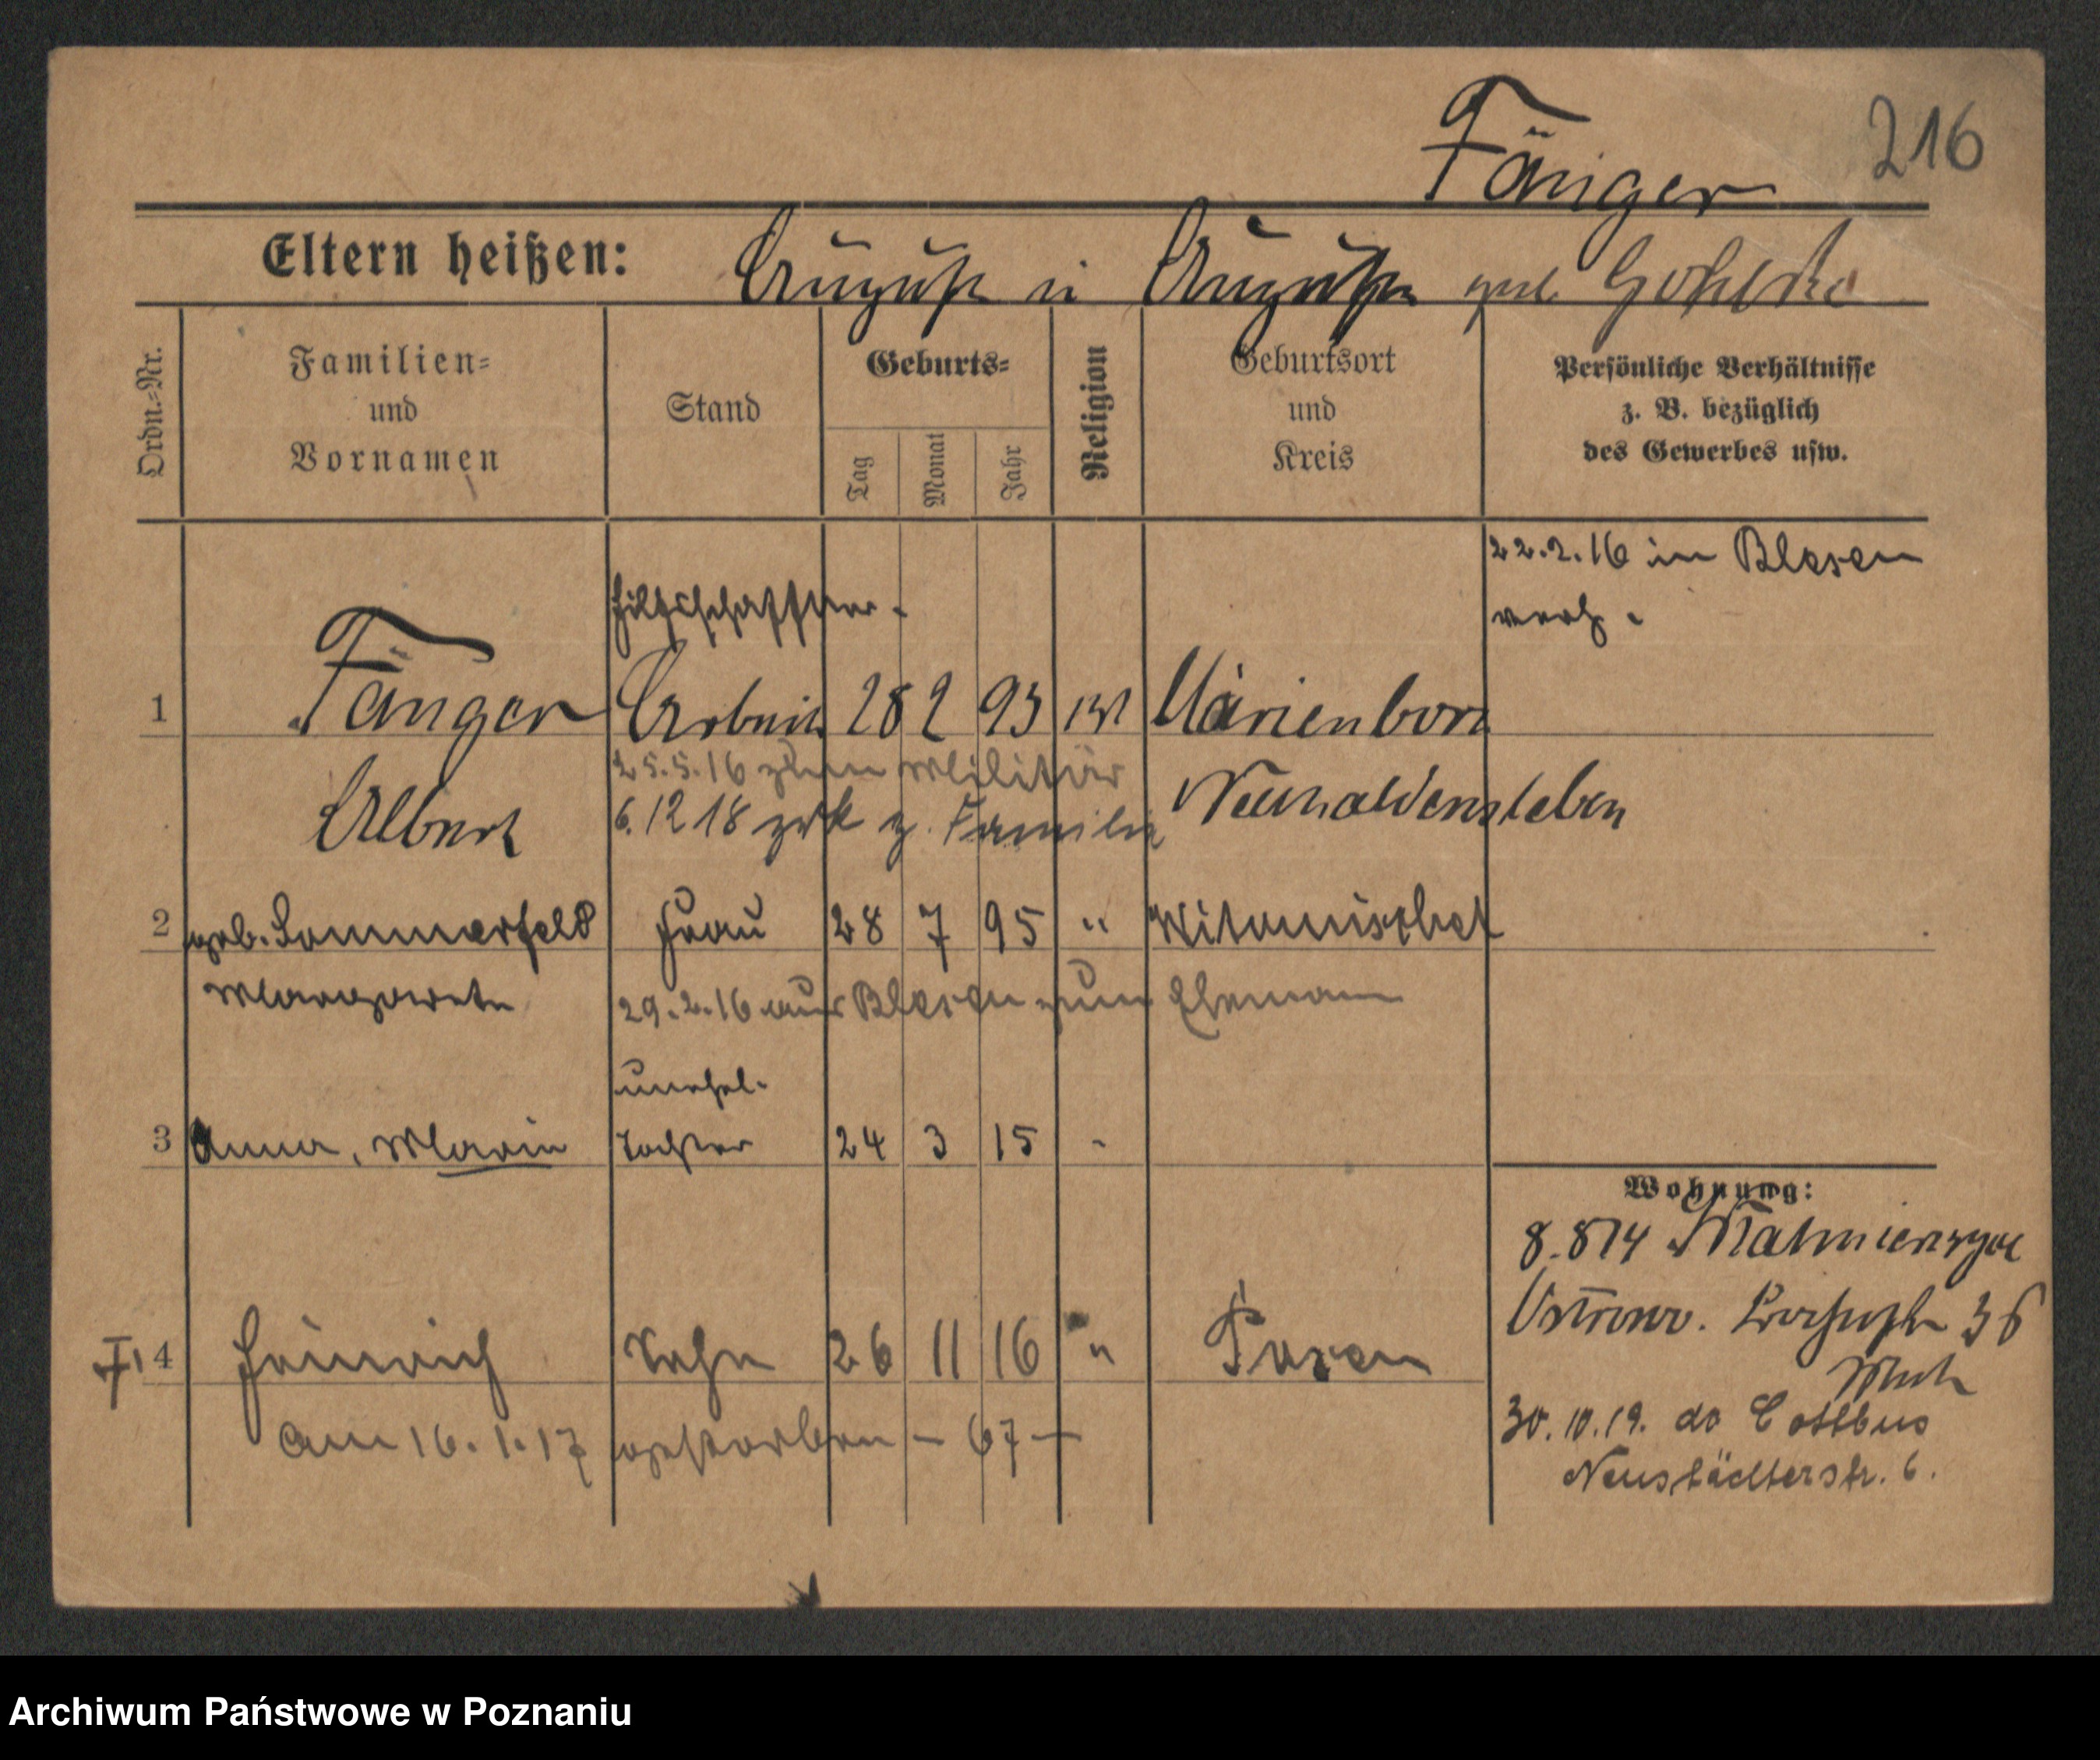 Fänger 216
Eltern heißen: August u Auguste geb. Gohlke
Ordn.-Nr.
Familien-
und
Vornamen
Stand
Geburts-
Tag
Monat
Jahr
Religion
Geburtsort
und
Kreis
Persönliche Verhältnisse
z. B. bezüglich
des Gewerbes usw.
22.2.16 in Blesen
verh.
Hilfsschaffner.
1 Fänger Arbeit 28 2 93 Marienborn
25.5.16 zum Militär
Albert 6.12 18 zrk z. Familie Neuhaldensleben
2 geb. Sommerfeld Frau 28 7 95 " Witomischel
Margarete 29.2.16 aus Blesen zum Ehemann
unehel.
3 Anna, Marie Tochter 24 3 15 "
Wohnung:
8.814
4 Heinrich Sohn 26 11 16 " Posen
36
am 16.1.17 gestorben - 67 -
30.10.19. do Cottbus
Neustädterstr. 6.
Archiwum Państwowe w Poznaniu